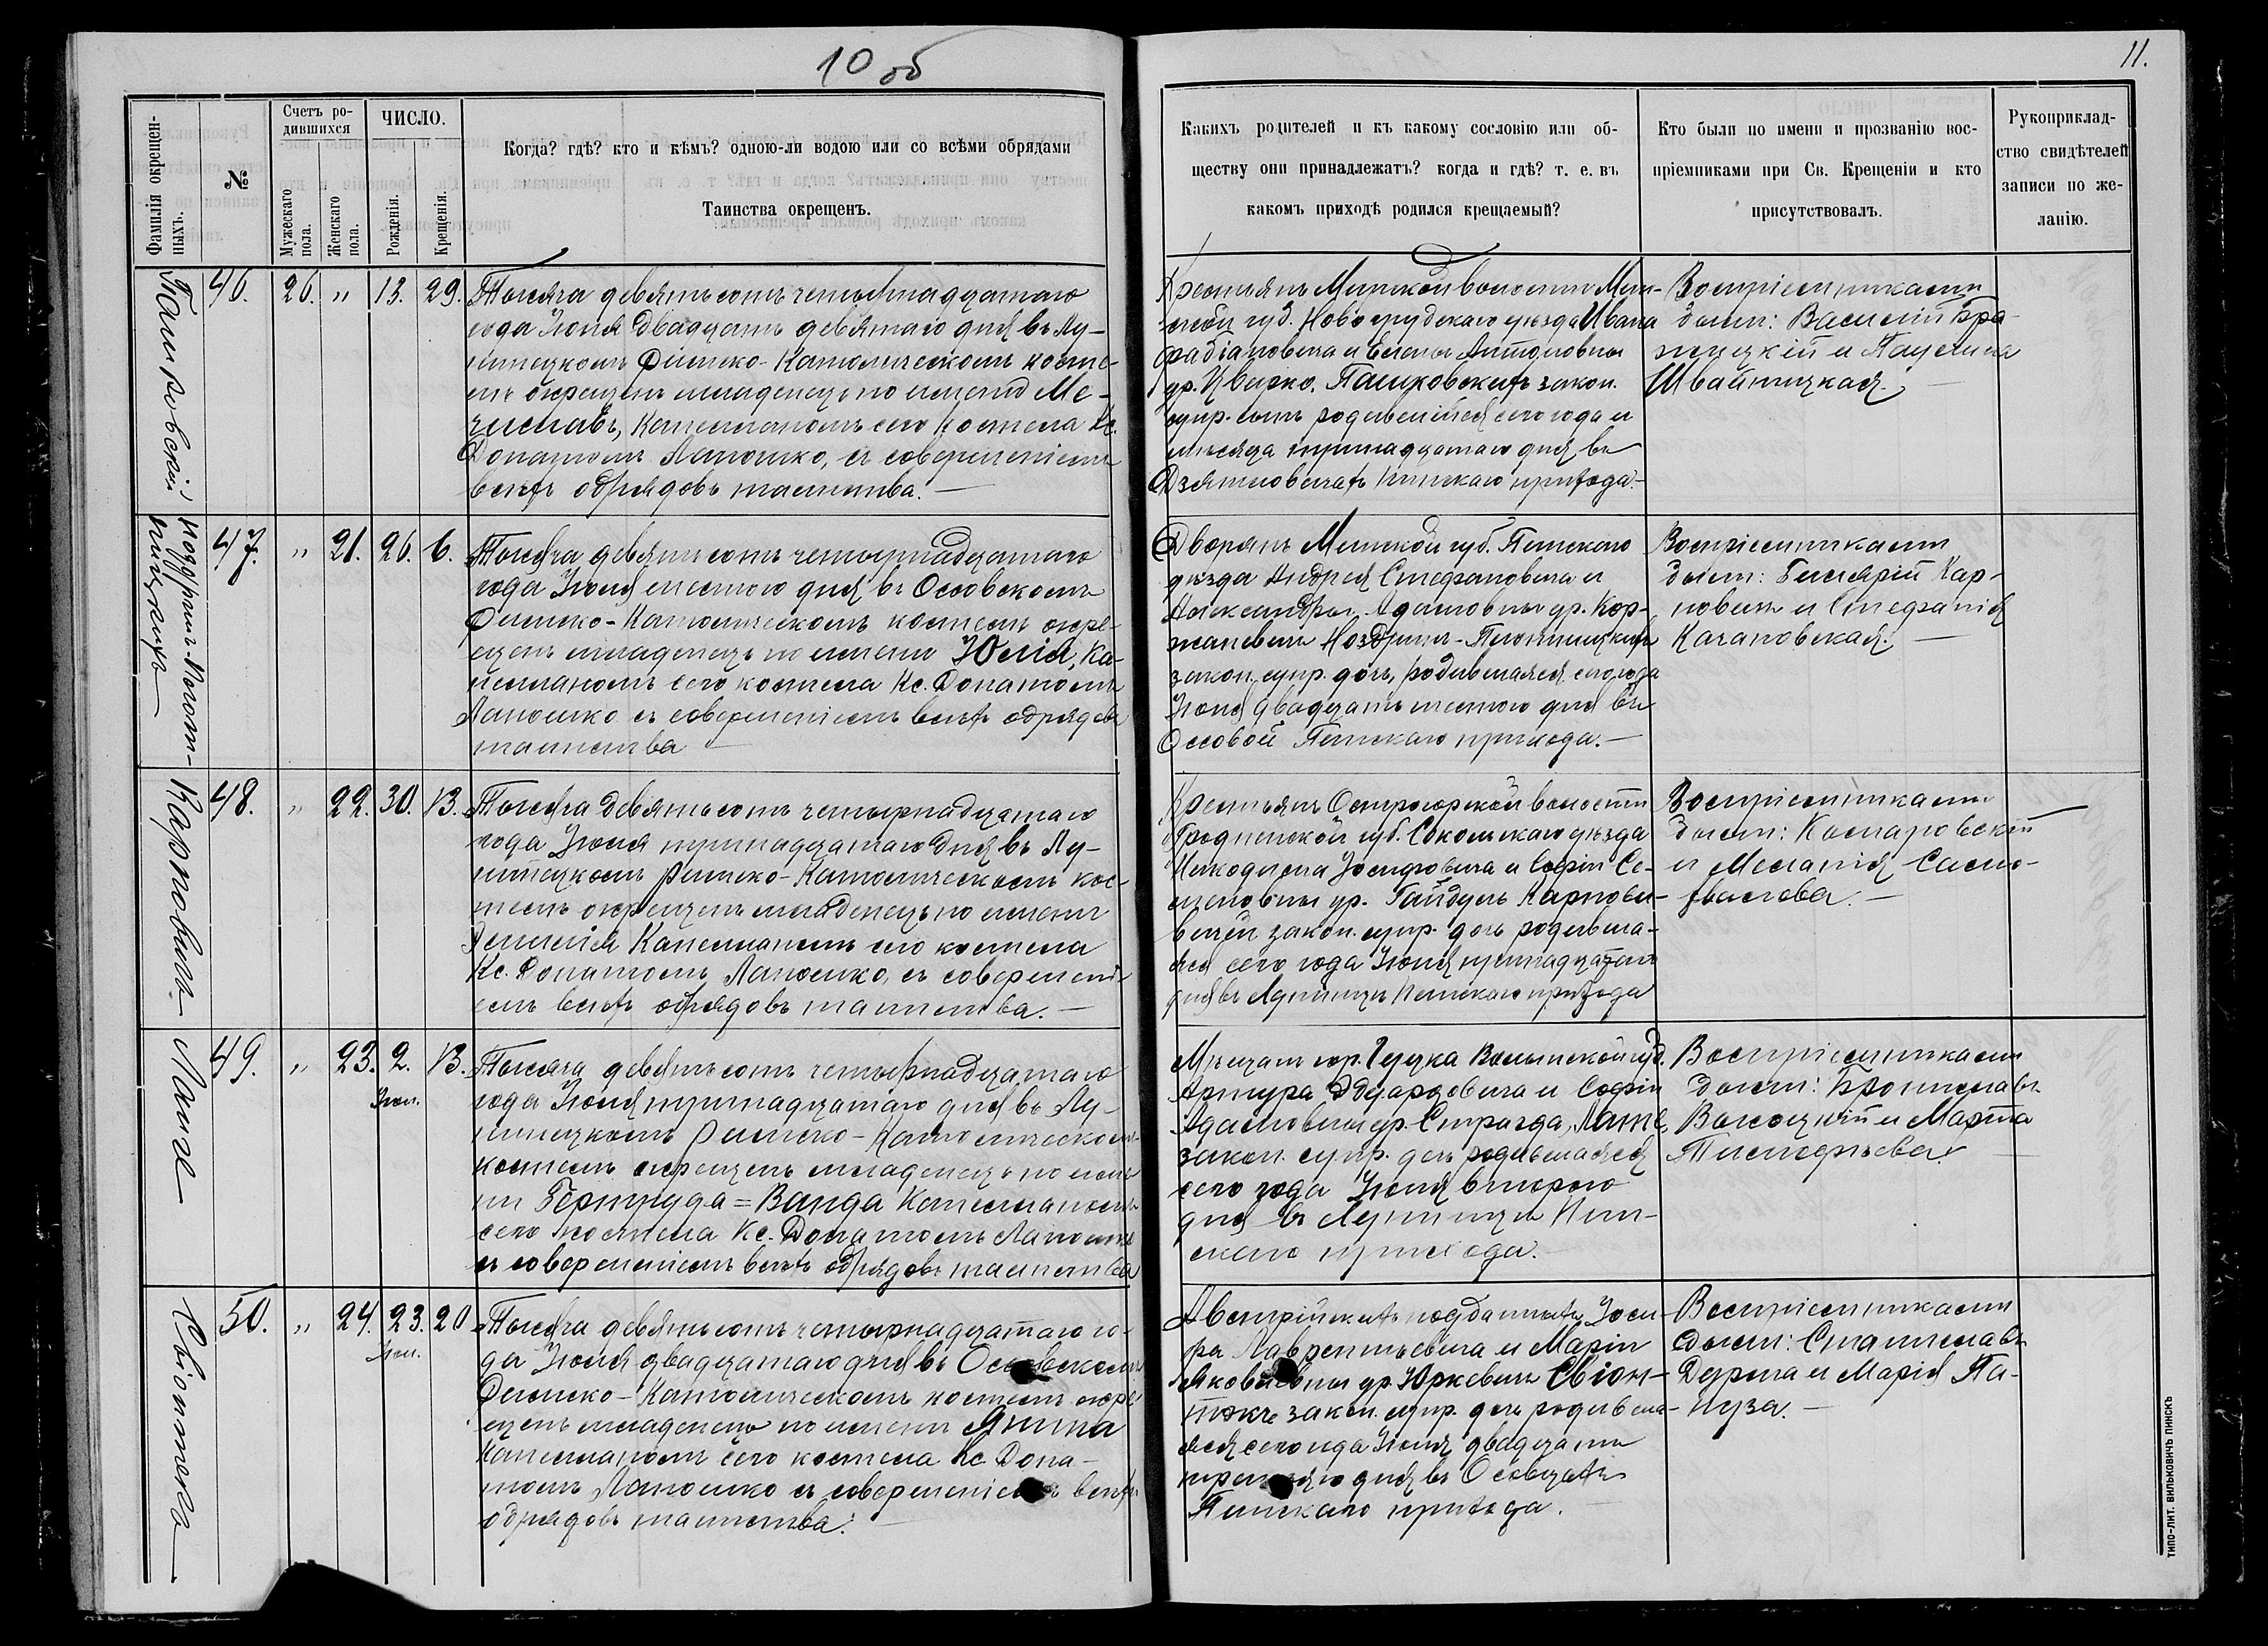 10 об
11.
Фамилія окрещен-
ныхъ.
№
Счетъ ро-
дившихся
Мужескаго
пола.
Женскаго
пола.
ЧИСЛО.
Рожденія.
Крещенія.
Когда? гдѣ? кто и кѣмъ? одною-ли водою или со всѣми обрядами
Таинства окрещенъ.
Какихъ родителей и къ какому сословію или об-
ществу они принадлежатъ? когда и гдѣ? т. е. въ
какомъ приходѣ родился крещаемый?
Кто были по имени и прозванію вос-
пріемниками при Св. Крещеніи и кто
присутствовалъ.
Рукоприклад-
ство свидѣтелей
записи по же-
ланію.
Пашковскій
46. 26. " 13. 29.
Тысяча девятьсотъ четырнадцатаго
года Іюня двадцать девятаго дня въ Лу-
нинецкомъ Римско-Католическомъ косте-
лѣ окрещенъ младенецъ по имени Ме-
числавъ, Капелланомъ сего костела Кс.
Донатомъ Лапошко, съ совершеніемъ
всѣхъ обрядовъ таинства.—
Крестьянъ Мирской волости Мин-
ской губ. Новогрудскаго уѣзда Ивана
Фабіановича и Елены Антоновны
ур. Цвирко, Пашковскихъ закон.
супр. сынъ родившійся сего года и
мѣсяца тринадцатаго дня въ
Дзятловичахъ Пинскаго прихода.—
Воспріемниками
были: Василій Бра-
жицкій и Паулина
Швайницкая.—
Ноздринъ-Плот-
ницкихъ
47. " 21. 26. 6.
Тысяча девятьсотъ четырнадцатаго
года Іюля шестого дня въ Оссовскомъ
Римско-Католическомъ костелѣ окре-
щенъ младенецъ по имени Юлія, Ка-
пелланомъ сего костела Кс. Донатомъ
Лапошко съ совершеніемъ всѣхъ обрядовъ
таинства —
Дворянъ Минской губ. Пинскаго
уѣзда Андрея Стефановича и
Александры Адамовны ур. Кор-
жаневичъ Ноздринъ-Плотницкихъ
закон. супр. дочь, родившаяся сего года
Іюня двадцать шестого дня въ
Оссовой Пинскаго прихода.—
Воспріемниками
были: Гилярій Кар-
повичъ и Стефанія
Качановская.—
Карповичъ
48. " 22. 30. 13.
Тысяча девятьсотъ четырнадцатаго
года Іюля тринадцатаго дня въ Лу-
нинецкомъ Римско-Католическомъ кос-
телѣ окрещенъ младенецъ по имени
Капелланомъ сего костела
Кс. Донатомъ Лапошко, съ совершені-
емъ всѣхъ обрядовъ таинства.—
Крестьянъ Островской волости
Гродненской губ. Сокольскаго уѣзда
Никодима Іосифовича и Софіи Се-
меновны ур. Гайдуль Карпови-
вичей закон. супр. дочь родивша-
яся сего года Іюня тридцатаго
дня въ Лунинцѣ Пинскаго прихода
Воспріемниками
были: Комаровскій
и Меланія Само-
хвалова.—
Лянге
49. " 23. 2. 13.
Іюл.
Тысяча девятьсотъ четырнадцатаго
года Іюля тринадцатаго дня въ Лу-
нинецкомъ Римско-Католическомъ
костелѣ окрещенъ младенецъ по име-
ни Гертруда=Ванда Капелланомъ
сего костела Кс. Донатомъ Лапошко
съ совершеніемъ всѣхъ обрядовъ таинства
Мѣщанъ гор. Луцка Волынской губ.
Артура Эдуардовича и Софіи
Адамовны ур. Страгда, Лянге,
закон. супр. дочь родившаяся
сего года Іюля второго
дня въ Лунинцѣ Пин-
скаго прихода.
Воспріемниками
были: Брониславъ
Волоцкій и Марта
Тимофѣева.
Свіонтекъ
50. " 24. 23. 20
Іюн.
Тысяча девятьсотъ четырнадцатаго го-
да Іюля двадцатаго дня въ Оссовскомъ
Римско-Католическомъ костелѣ окре-
щенъ младенецъ по имени Янина
Капелланомъ сего костела Кс. Дона-
томъ Лапошко съ совершеніемъ всѣхъ
обрядовъ таинства.—
Австрійскихъ подданныхъ Іоси-
фа Лаврентьевича и Маріи
Яковлевны ур. Юркевичъ Свіон-
текъ закон. супр. дочь родивша-
яся сего года Іюня двадцать
третьяго дня въ Осовцахъ
Пинскаго прихода.
Воспріемниками
были: Станиславъ
Дурма и Марія Па-
пуза.—
ТИПО-ЛИТ. ВИЛЬКОВИЧЪ ПИНСКЪ